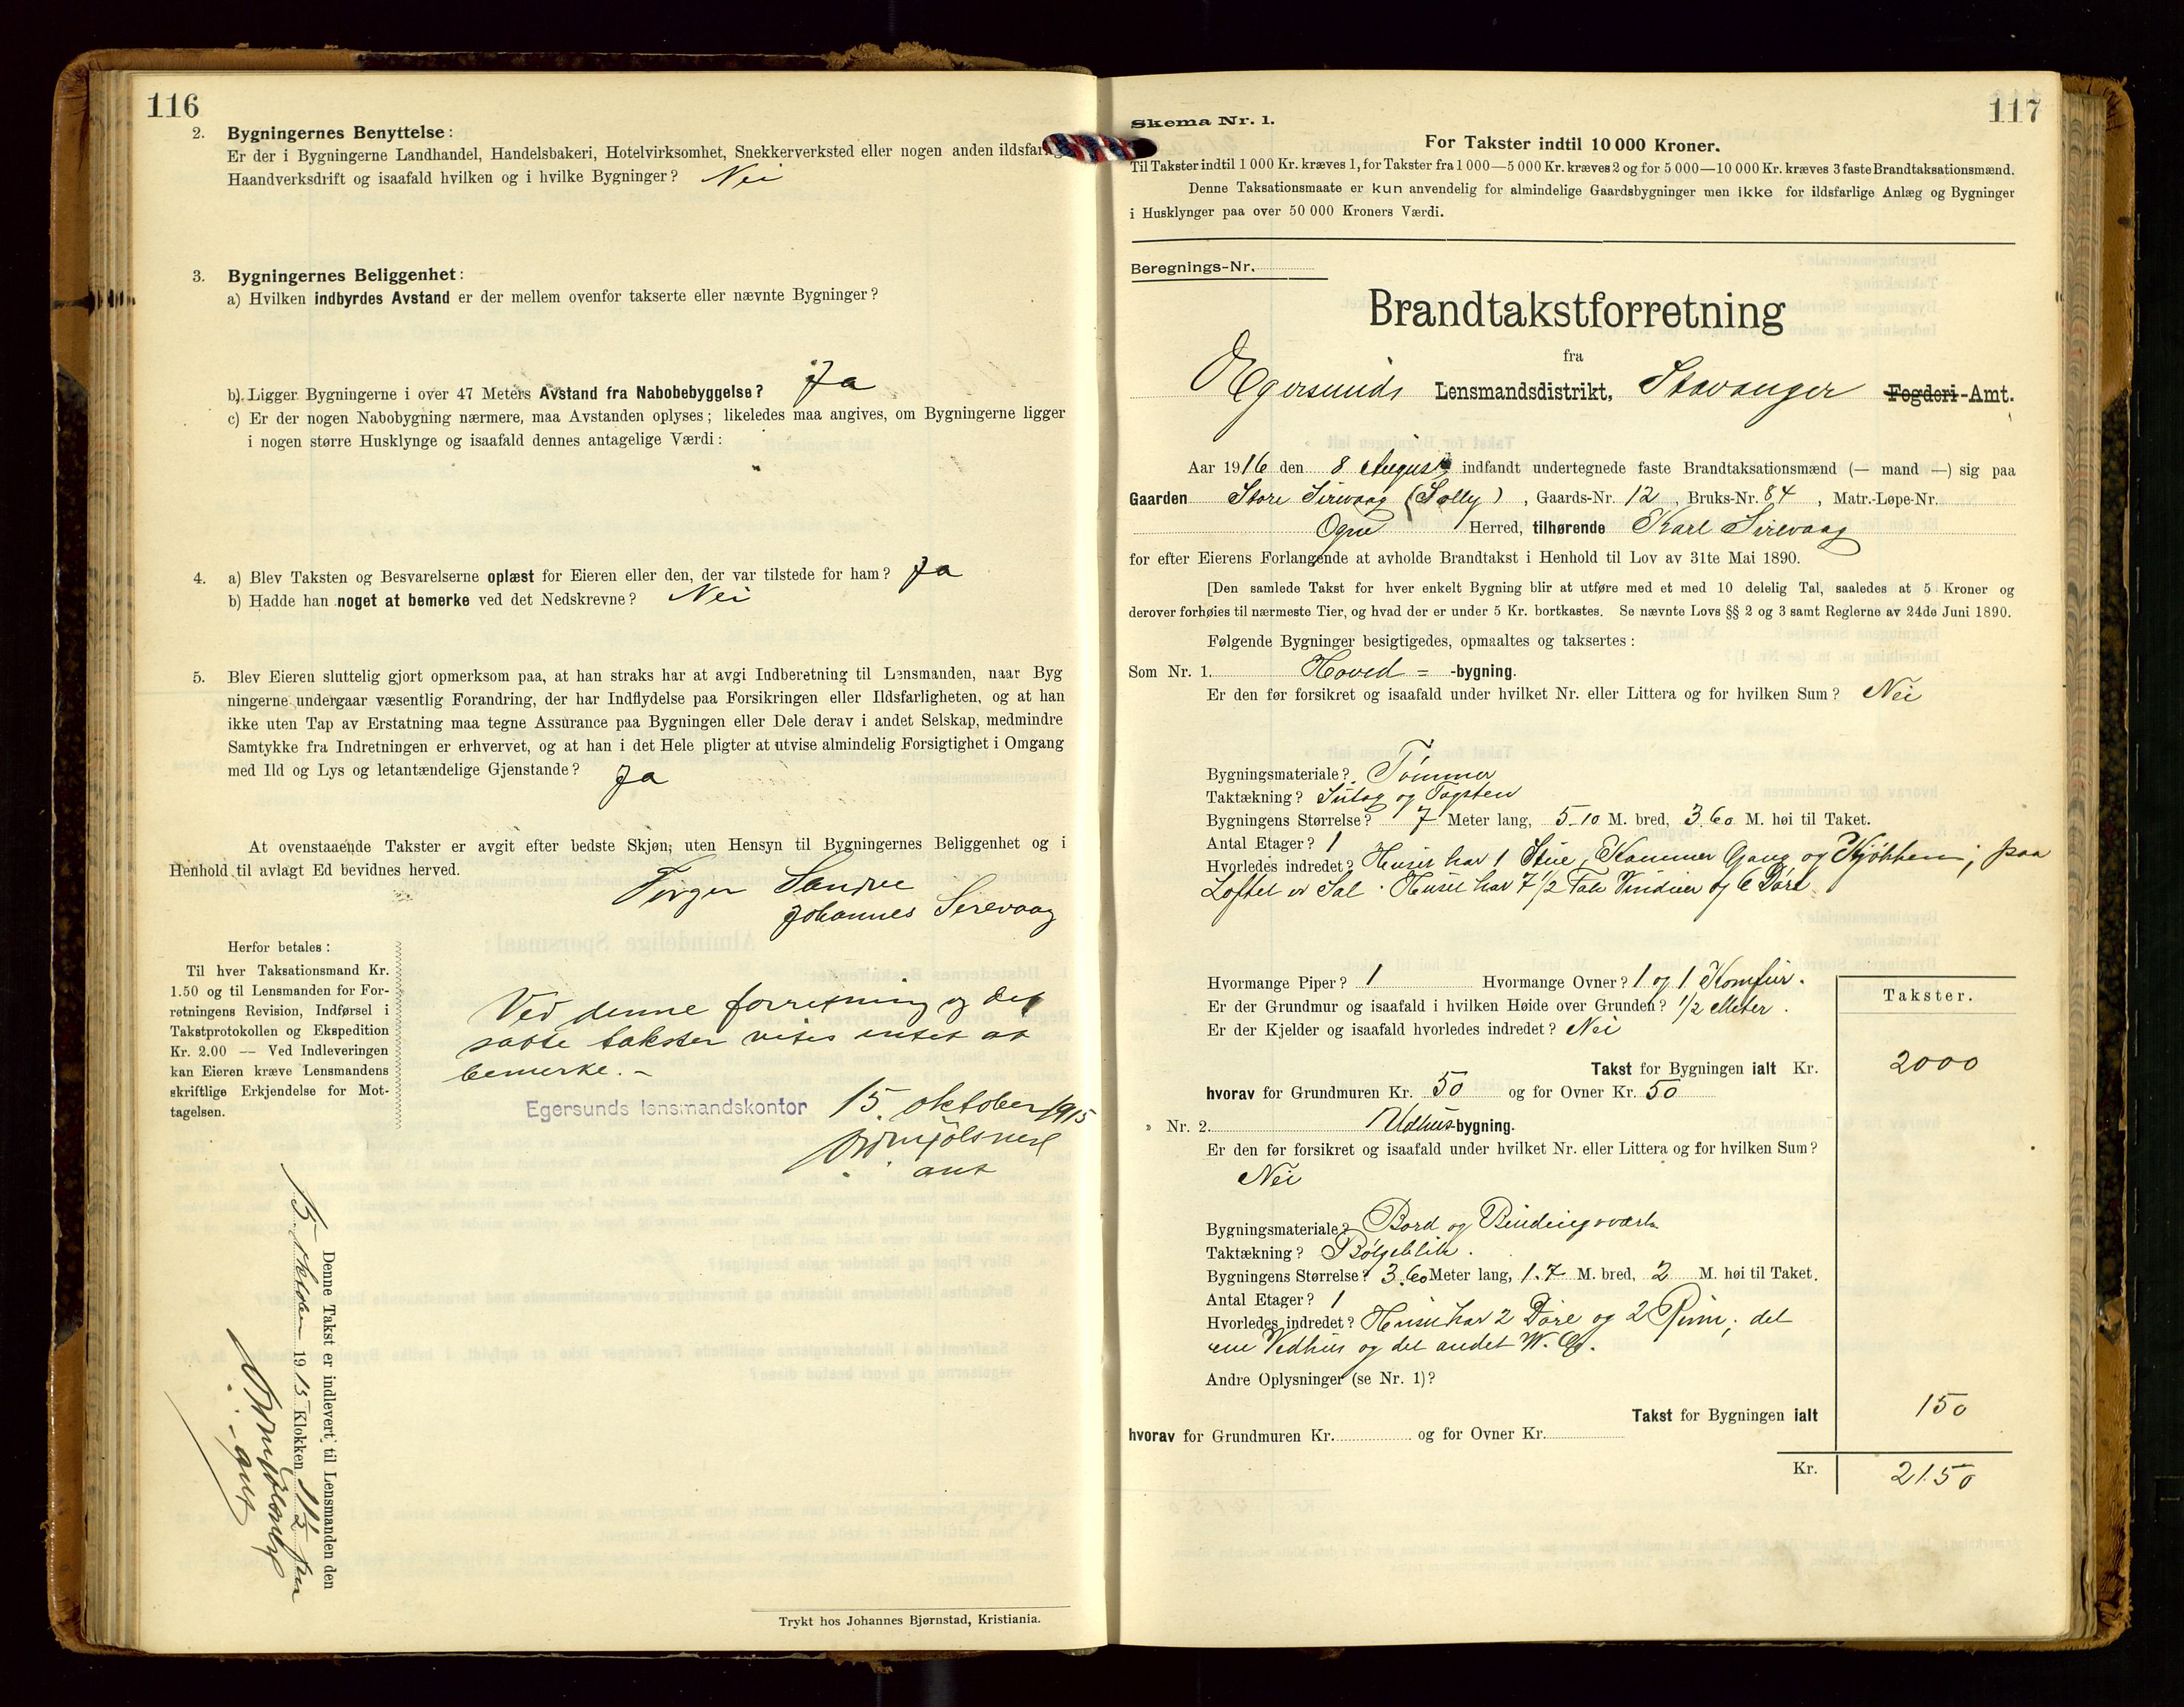 116
2. Bygningernes Benyttelse:
Er der i Bygningerne Landhandel, Handelsbakeri, Hotelvirksomhet, Snekkerverksted eller nogen anden ildsfarlig
Haandverksdrift og isaafald hvilken og i hvilke Bygninger? Nei
3. Bygningernes Beliggenhet:
a) Hvilken indbyrdes Avstand er der mellem ovenfor takserte eller nævnte Bygninger?
b) Ligger Bygningerne i over 47 Meters Avstand fra Nabobebyggelse? Ja
c) Er der nogen Nabobygning nærmere, maa Avstanden oplyses; likeledes maa angives, om Bygningerne ligger
i nogen større Husklynge og isaafald dennes antagelige Værdi:
4. a) Blev Taksten og Besvarelserne oplæst for Eieren eller den, der var tilstede for ham? Ja
b) Hadde han noget at bemerke ved det Nedskrevne? Nei
5. Blev Eieren sluttelig gjort opmerksom paa, at han straks har at avgi Indberetning til Lensmanden, naar Byg
ningerne undergaar væsentlig Forandring, der har Indflydelse paa Forsikringen eller Ildsfarligheten, og at han
ikke uten Tap av Erstatning maa tegne Assurance paa Bygningen eller Dele derav i andet Selskap, medmindre
Samtykke fra Indretningen er erhvervet, og at han i det Hele pligter at utvise almindelig Forsigtighet i Omgang
med Ild og Lys og letantændelige Gjenstande? Ja
At ovenstaaende Takster er avgit efter bedste Skjøn, uten Hensyn til Bygningernes Beliggenhet og i
Henhold til avlagt Ed bevidnes herved.
Torger Sandve
Johannes Sirevaag
Herfor betales:
Til hver Taksationsmand Kr.
1.50 og til Lensmanden for For-
retningens Revision, Indførsel i
Takstprotokollen og Ekspedition
Kr. 2.00 — Ved Indleveringen
kan Eieren kræve Lensmandens
skriftlige Erkjendelse for Mot-
tagelsen.
Ved denne forretning og det
satte takster vites intet at
bemerke. -
Egersunds lensmandskontor 15. oktober 1915
Denne Takst er indlevert til Lensmanden den
15 oktober 1915 Klokken
Trykt hos Johannes Bjørnstad, Kristiania.
117
Skema Nr. 1.
For Takster indtil 10 000 Kroner.
Til Takster indtil 1 000 Kr. kræves 1, for Takster fra 1 000—5 000 Kr. kræves 2 og for 5 000—10 000 Kr. kræves 3 faste Brandtaksationsmænd.
Denne Taksationsmaate er kun anvendelig for almindelige Gaardsbygninger men ikke for ildsfarlige Anlæg og Bygninger
i Husklynger paa over 50 000 Kroners Værdi.
Beregnings-Nr.
Brandtakstforretning
fra
Egersunds Lensmandsdistrikt, Stavanger Fogderi-Amt.
Aar 1916 den 8 August indfandt undertegnede faste Brandtaksationsmænd (— mand —) sig paa
Gaarden Store Sirevaag (Solly), Gaards-Nr. 12, Bruks-Nr. 84, Matr.-Løpe-Nr.
Ogne Herred, tilhørende Karl Sirevaag
for efter Eierens Forlangende at avholde Brandtakst i Henhold til Lov av 31te Mai 1890.
[Den samlede Takst for hver enkelt Bygning blir at utføre med et med 10 delelig Tal, saaledes at 5 Kroner og
derover forhøies til nærmeste Tier, og hvad der er under 5 Kr. bortkastes. Se nævnte Lovs §§ 2 og 3 samt Reglerne av 24de Juni 1890.
Følgende Bygninger besigtigedes, opmaaltes og taksertes:
Som Nr. 1. Hoved= -bygning.
Er den før forsikret og isaafald under hvilket Nr. eller Littera og for hvilken Sum? Nei
Bygningsmateriale? Tømmer
Taktækning? Sutag og Tagsten
Bygningens Størrelse? 7 Meter lang, 5-10 M. bred, 3.60 M. høi til Taket.
Antal Etager? 1
Hvorledes indredet? Huset har 1 Stue, Kammer Gang og Kjøkken; paa
Loftet er Sal. Huset har 7 1/2 Fah Vinduer og 6 Døre.
Hvormange Piper? 1 Hvormange Ovner? 1 og 1 Komfur.
Er der Grundmur og isaafald i hvilken Høide over Grunden? 1/2 Meter.
Er der Kjelder og isaafald hvorledes indredet? Nei
Takster.
Takst for Bygningen ialt Kr. 2000
hvorav for Grundmuren Kr. 50 og for Ovner Kr. 50
» Nr. 2. Udhus-bygning.
Er den før forsikret og isaafald under hvilket Nr. eller Littera og for hvilken Sum?
Nei
Bygningsmateriale? Bord og Bindingsværk
Taktækning? Bølgeblik.
Bygningens Størrelse? 3.60 Meter lang, 1.7 M. bred, 2 M. høi til Taket.
Antal Etager? 1
Hvorledes indredet? Huset har 2 Døre og 2 Rum; det
ene Vedhus og det andet W. C.
Andre Oplysninger (se Nr. 1)?
Takst for Bygningen ialt 150
hvorav for Grundmuren Kr. og for Ovner Kr.
Kr. 2150